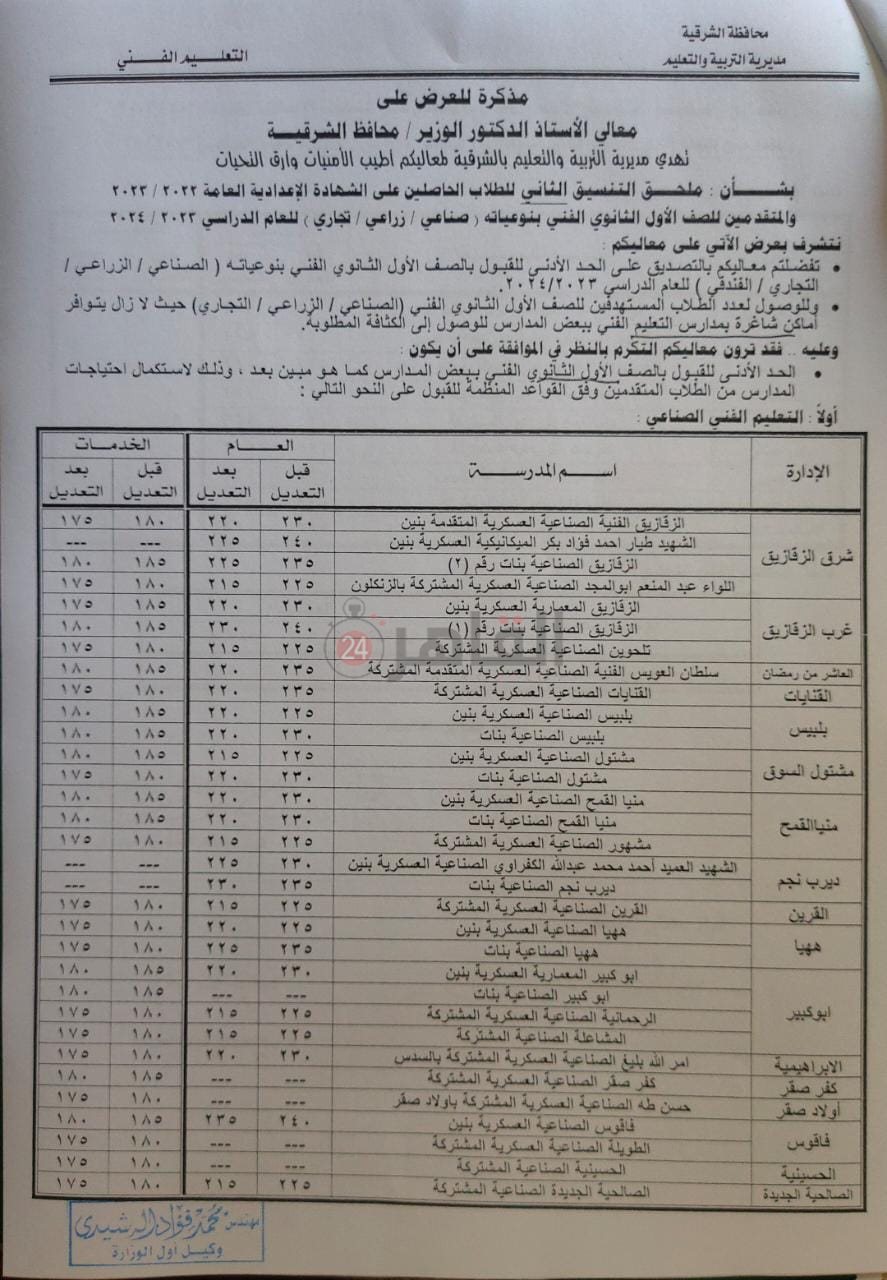 محافظة الشرقية
مديرية التربية والتعليم
التعليم الفني
مذكرة للعرض على
معالي الأستاذ الدكتور الوزير / محافظ الشرقية
تهدي مديرية التربية والتعليم بالشرقية لمعاليكم اطيب الأمنيات وارق التحيات
بشأن : ملحق التنسيق الثاني للطلاب الحاصلين على الشهادة الإعدادية العامة ٢٠٢٢ / ٢٠٢٣
والمتقدمين للصف الأول الثانوي الفني بنوعياته ( صناعي / زراعي / تجاري ) للعام الدراسي ٢٠٢٣ / ٢٠٢٤
نتشرف بعرض الآتي على معاليكم :
• تفضلتم معاليكم بالتصديق على الحد الأدني للقبول بالصف الأول الثانوي الفني بنوعياته ( الصناعي / الزراعي /
التجاري / الفندقي ) للعام الدراسي ٢٠٢٤/٢٠٢٣.
• وللوصول لعدد الطلاب المستهدفين للصف الأول الثانوي الفني (الصناعي / الزراعي / التجاري) حيث لا زال يتوافر
أماكن شاغرة بمدارس التعليم الفني ببعض المدارس للوصول إلى الكثافة المطلوبة.
وعليه .. فقد ترون معاليكم التكرم بالنظر في الموافقة على أن يكون :
• الحد الأدنى للقبول بالصف الأول الثانوي الفني ببعض المدارس كما هو مبين بعد ، وذلك لاستكمال احتياجات
المدارس من الطلاب المتقدمين وفق القواعد المنظمة للقبول على النحو التالي :
أولاً : التعليم الفني الصناعي :
الإدارة اسم المدرسة العام الخدمات
قبل التعديل بعد التعديل قبل التعديل بعد التعديل
شرق الزقازيق الزقازيق الفنية الصناعية العسكرية المتقدمة بنين ٢٣٠ ٢٢٠ ١٨٠ ١٧٥
الشهيد طيار احمد فؤاد بكر الميكانيكية العسكرية بنين ٢٤٠ ٢٢٥ --- ---
الزقازيق الصناعية بنات رقم (٢) ٢٣٥ ٢٢٥ ١٨٥ ١٨٠
اللواء عبد المنعم ابوالمجد الصناعية العسكرية المشتركة بالزنكلون ٢٢٥ ٢١٥ ١٨٠ ١٧٥
غرب الزقازيق الزقازيق المعمارية العسكرية بنين ٢٣٠ ٢٢٠ ١٨٥ ١٧٥
الزقازيق الصناعية بنات رقم (١) ٢٤٠ ٢٣٠ ١٨٥ ١٨٠
تلحوين الصناعية العسكرية المشتركة ٢٢٥ ٢١٥ ١٨٠ ١٧٥
العاشر من رمضان سلطان العويس الفنية الصناعية العسكرية المتقدمة المشتركة ٢٣٥ ٢٢٠ ١٨٥ ١٨٠
القنايات القنايات الصناعية العسكرية المشتركة ٢٣٥ ٢٢٠ ١٨٠ ١٧٥
بلبيس بلبيس الصناعية العسكرية بنين ٢٢٥ ٢٢٠ ١٨٥ ١٨٠
بلبيس الصناعية بنات ٢٣٠ ٢٢٠ ١٨٥ ١٨٠
مشتول السوق مشتول الصناعية العسكرية بنين ٢٢٥ ٢١٥ ١٨٥ ١٨٠
مشتول الصناعية بنات ٢٣٠ ٢٢٠ ١٨٠ ١٧٥
منياالقمح منيا القمح الصناعية العسكرية بنين ٢٣٠ ٢٢٠ ١٨٥ ١٨٠
منيا القمح الصناعية بنات ٢٣٠ ٢٢٠ ١٨٥ ١٨٠
مشهور الصناعية العسكرية المشتركة ٢٢٥ ٢١٥ ١٨٠ ١٧٥
ديرب نجم الشهيد العميد أحمد محمد عبدالله الكفراوي الصناعية العسكرية بنين ٢٣٠ ٢٢٥ --- ---
ديرب نجم الصناعية بنات ٢٣٥ ٢٣٠ --- ---
القرين القرين الصناعية العسكرية المشتركة ٢٢٥ ٢١٥ ١٨٠ ١٧٥
ههيا ههيا الصناعية العسكرية بنين ٢٢٥ ٢٢٠ ١٨٠ ١٧٥
ههيا الصناعية بنات ٢٣٥ ٢٢٥ ١٨٠ ١٧٥
ابوكبير ابو كبير المعمارية العسكرية بنين ٢٣٠ ٢٢٠ ١٨٥ ١٨٠
ابو كبير الصناعية بنات --- --- ١٨٥ ١٨٠
الرحمانية الصناعية العسكرية المشتركة ٢٢٥ ٢١٥ ١٨٠ ١٧٥
المشاعلة الصناعية العسكرية المشتركة ٢٢٥ ٢١٥ ١٨٠ ١٧٥
الابراهيمية امر الله بليغ الصناعية العسكرية المشتركة بالسدس ٢٣٠ ٢٢٠ ١٨٠ ١٧٥
كفر صقر كفر صقر الصناعية العسكرية المشتركة --- --- ١٨٥ ١٨٠
أولاد صقر حسن طه الصناعية العسكرية المشتركة باولاد صقر --- --- ١٨٠ ١٧٥
فاقوس فاقوس الصناعية العسكرية بنين ٢٤٠ ٢٣٥ ١٨٥ ١٨٠
الطويلة الصناعية العسكرية المشتركة --- --- ١٨٠ ١٧٥
الحسينية الحسينية الصناعية المشتركة --- --- ١٨٠ ١٧٥
الصالحية الجديدة الصالحية الجديدة الصناعية المشتركة ٢٢٥ ٢١٥ ١٨٠ ١٧٥
القاهرة 24
مهندس محمد فؤاد الرشيدى
وكيل أول الوزارة